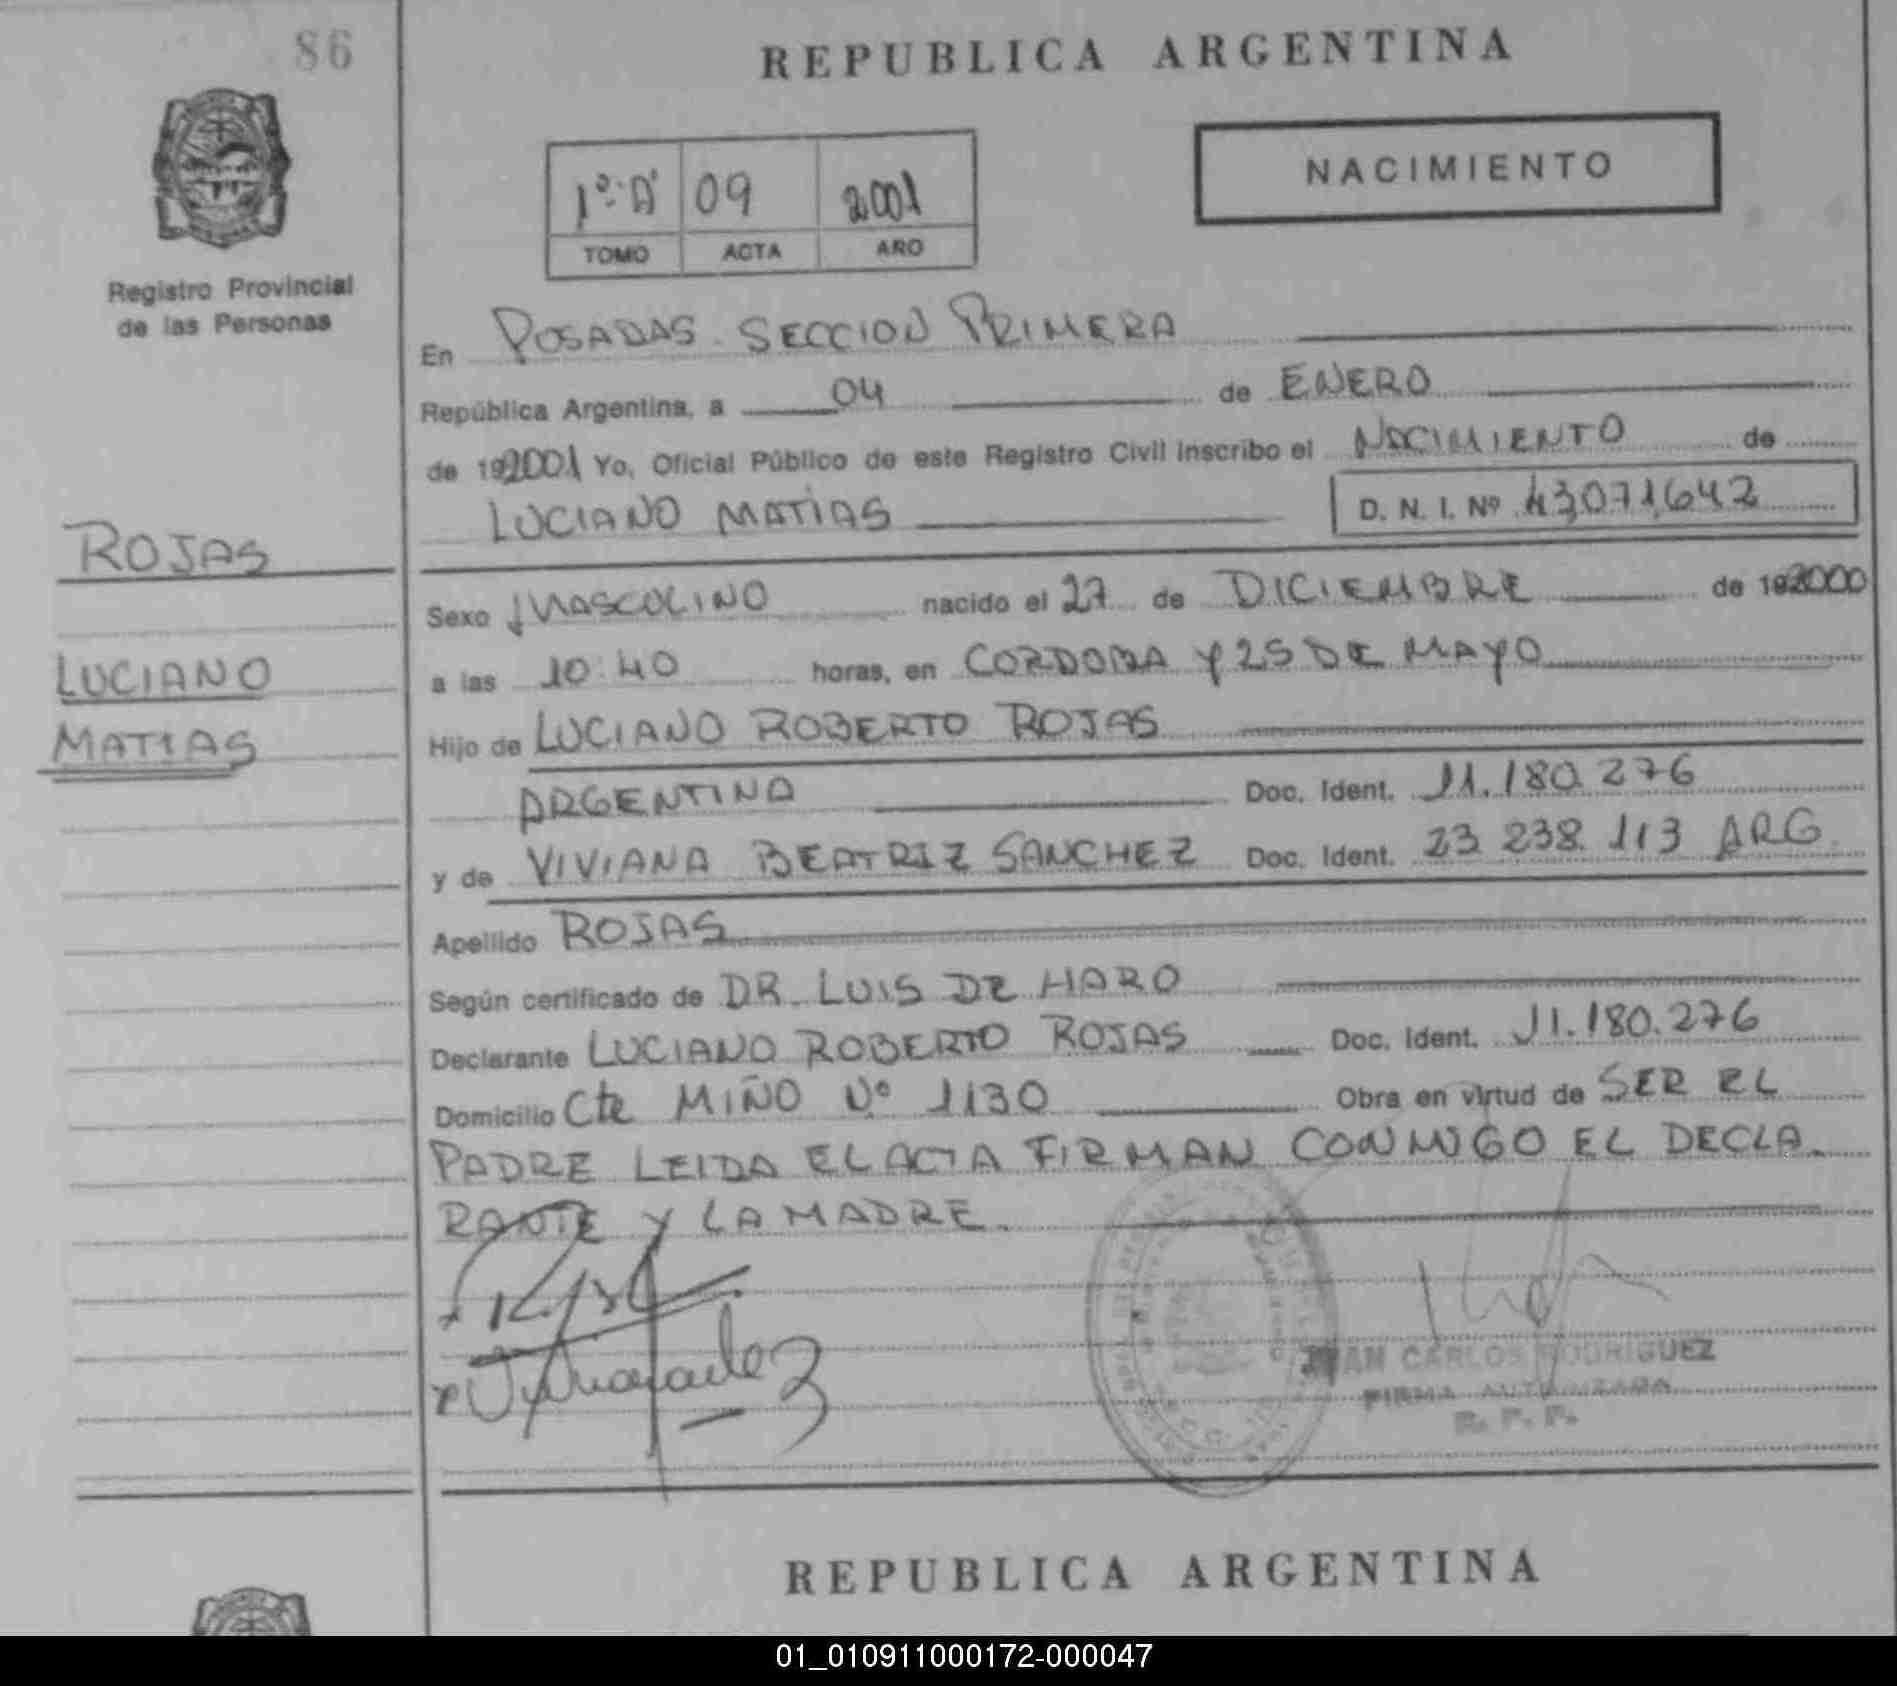 86
REPUBLICA ARGENTINA
NACIMIENTO
1º "A" 09 2001
TOMO ACTA AÑO
Registro Provincial
de las Personas
En POSADAS. SECCION PRIMERA
República Argentina, a 04 de ENERO
de 192001 Yo, Oficial Público de este Registro Civil inscribo el NACIMIENTO de
LUCIANO MATIAS D. N. I. Nº 43.071.642
ROJAS
LUCIANO
MATIAS
Sexo MASCULINO nacido el 27 de DICIEMBRE de 192000
a las 10:40 horas, en CORDOBA Y 25 DE MAYO
Hijo de LUCIANO ROBERTO ROJAS
ARGENTINA Doc. Ident. 11.180.276
y de VIVIANA BEATRIZ SANCHEZ Doc. Ident. 23.238.113 ARG.
Apellido ROJAS
Según certificado de DR. LUIS DE HARO
Declarante LUCIANO ROBERTO ROJAS Doc. Ident. 11.180.276
Domicilio Cte MIÑO Nº 1130 Obra en virtud de SER EL
PADRE LEIDA EL ACTA FIRMAN CONMIGO EL DECLA.
RANTE Y LA MADRE.
JUAN CARLOS RODRIGUEZ
FIRMA AUTORIZADA
R. P. P.
REPUBLICA ARGENTINA
01_010911000172-000047